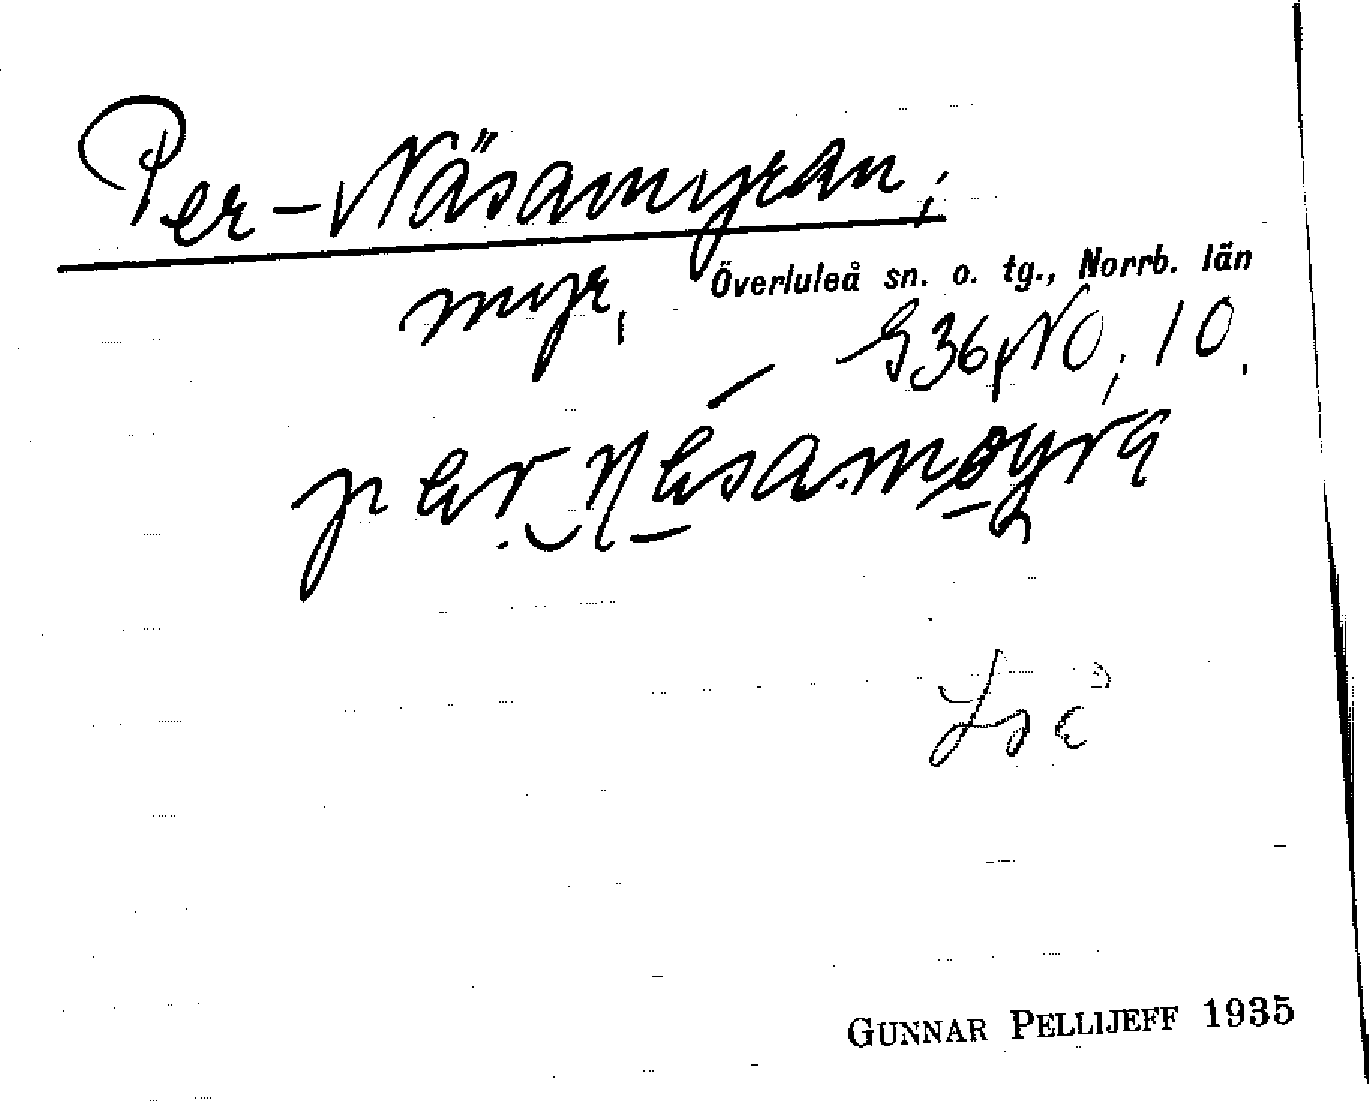 Per-Näsamyran,
myr, Överluleå sn. o. tg., Norrb. län
G36, NO, 10.
per. næsamøyra
GUNNAR PELLIJEFF 1935